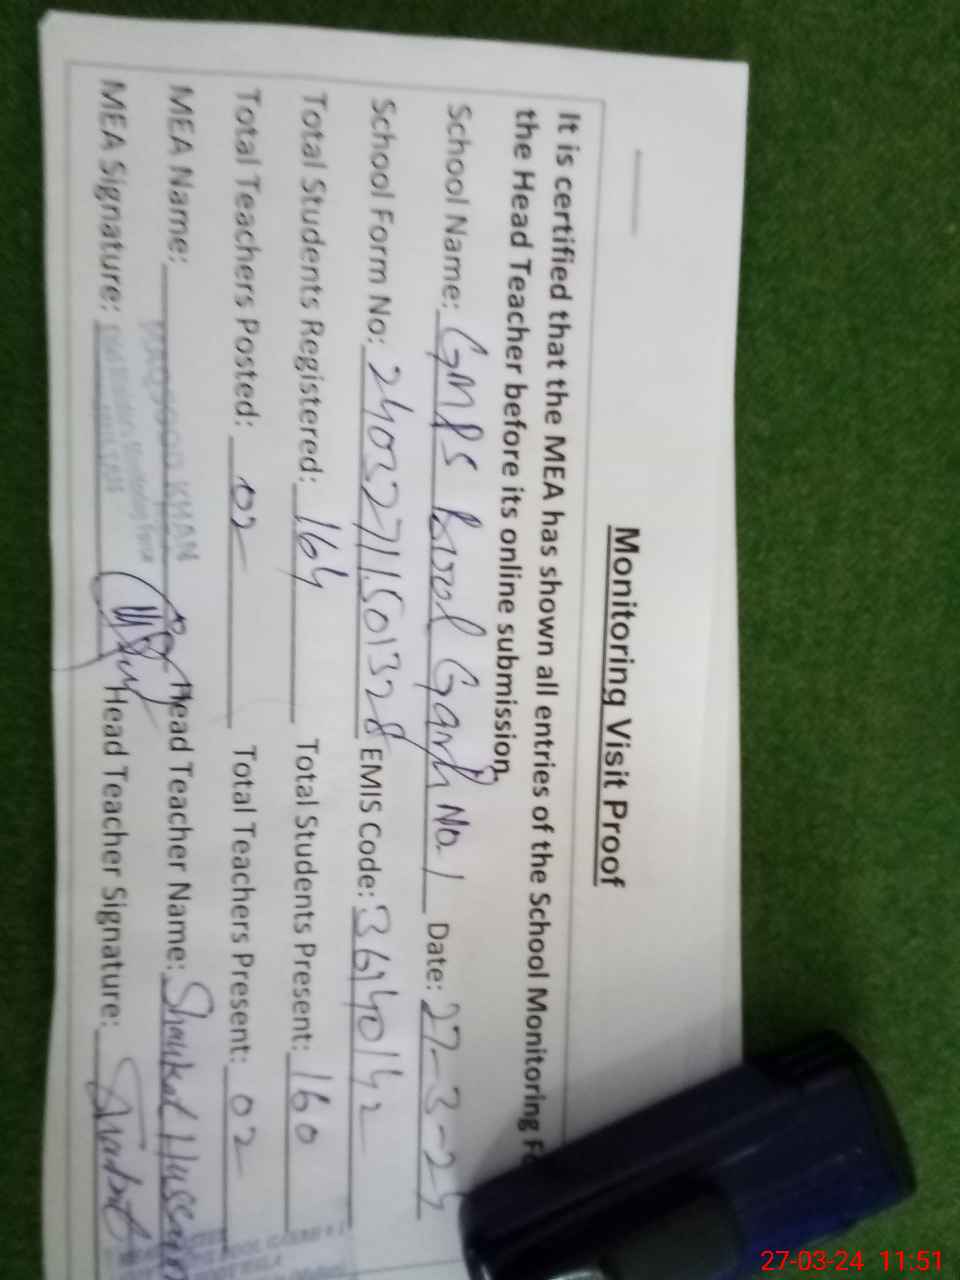 Monitoring Visit Proof
It is certified that the MEA has shown all entries of the School Monitoring
the Head Teacher before its online submission.
School Name: GMPS Garh No. 1 Date: 27-3-24
School Form No: 24032711501328 EMIS Code: 36140142
Total Students Registered: 164 Total Students Present: 160
Total Teachers Posted: 02 Total Teachers Present: 02
MEA Name: KHAN Head Teacher Name: Shaukat Hussain
MEA Signature: Head Teacher Signature:
27-03-24 11:51